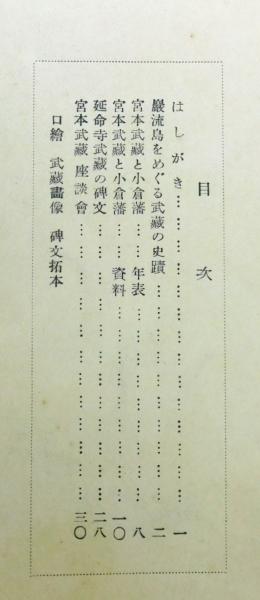 目次
はしがき……………………………………一
巖流島をめぐる武藏の史蹟……………………二
宮本武藏と小倉藩……年表……………………八
宮本武藏と小倉藩……資料……………………一〇
延命寺武藏の碑文………………………………二八
宮本武藏座談會…………………………………三〇
口繪 武藏畵像 碑文拓本